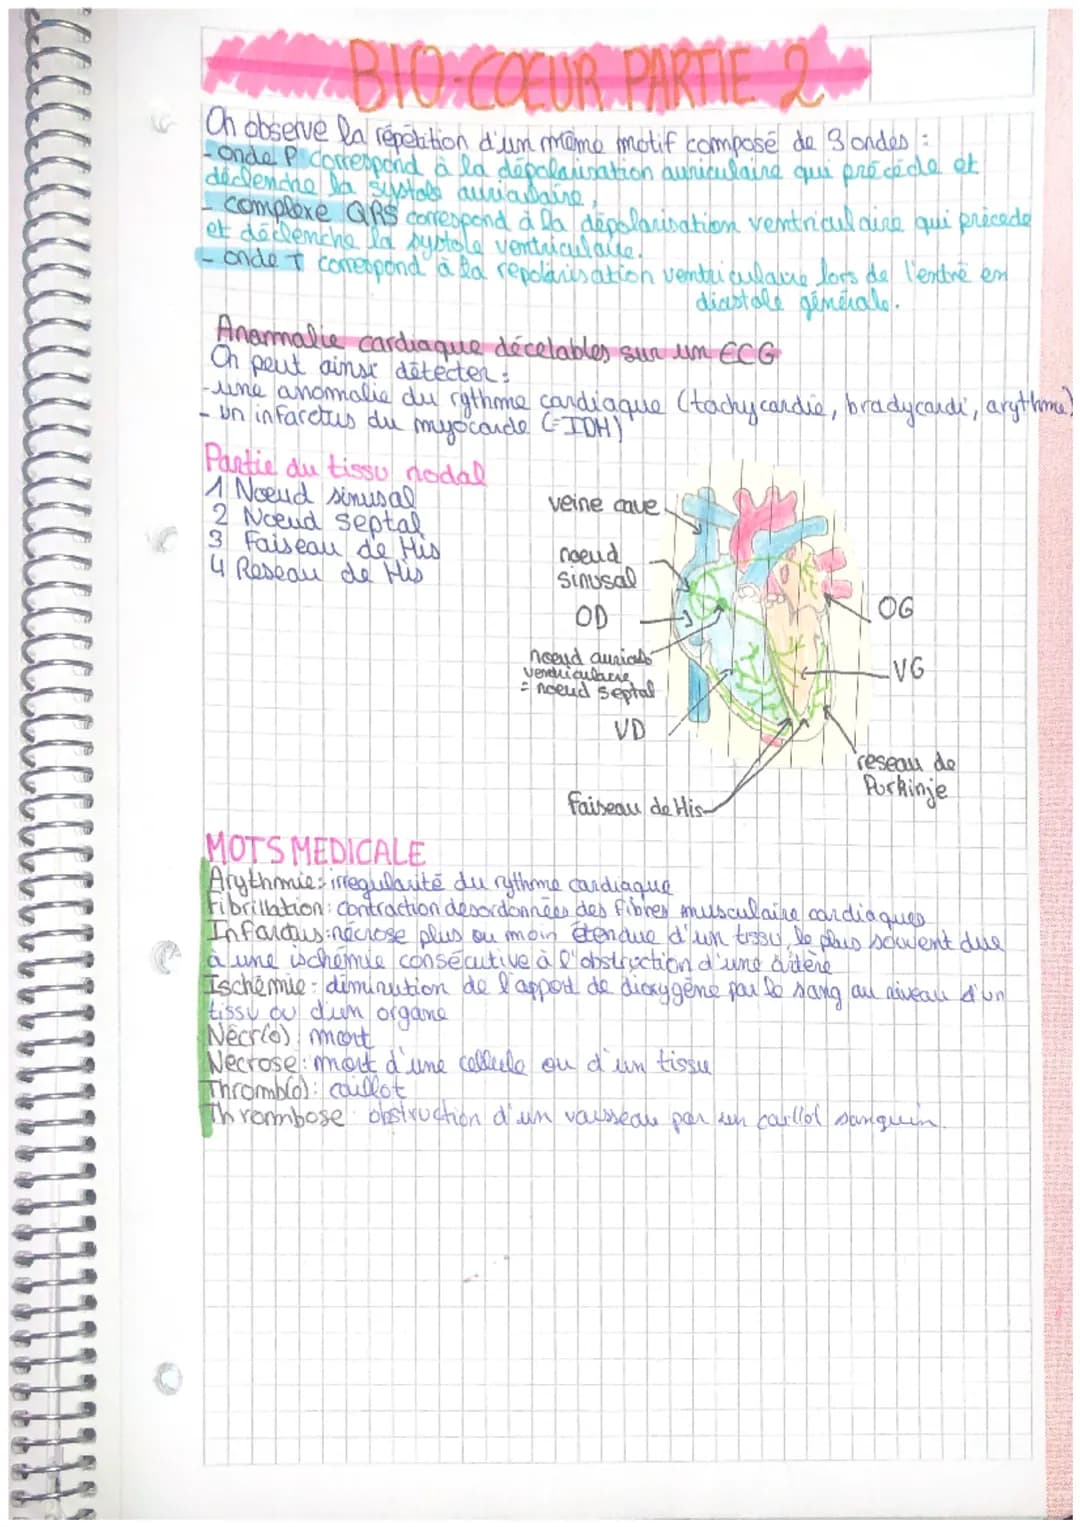 BIO-COEUR PARTIE 2
On observe la répétition d'un même motif composé de 3 ondes :
- onde P correspond à la dépolarisation auriculaire qui précède et
déclenche la systole auriculaire,
- complexe QRS correspond à la dépolarisation ventriculaire qui précede
et déclenche la systole ventriculaire.
- onde T correspond à la repolarisation ventriculaire lors de l'entré en
diastole générale.
Anormalie cardiaque décelables sur un ECG
On peut ainsi détecter :
- une anomalie du rythme cardiaque (tachycardie, bradycardi, arythme)
- un infarctus du myocarde (=IDM)
Partie du tissu nodal
1 Noeud sinusal
2 Noeud septal
3 Faiseau de His
4 Reseau de His
veine cave
noeud
sinusal
OD
OG
noeud auriculo
ventriculaire
= noeud septal
VG
VD
reseau de
Purkinje
Faiseau de His
MOTS MEDICALE
Arythmie: irregularité du rythme cardiaque
Fibrillation: contraction desordonnées des fibres musculaire cardiaques
Infarctus: nécrose plus ou moin étendue d'un tissu, le plus souvent due
à une ischémie consécutive à l'obstruction d'une artère
Ischémie: diminution de l'apport de dioxygène par le sang au niveau d'un
tissu ou d'un organe
Nécr(o): mort
Nécrose: mort d'une cellule ou d'un tissu
Thromb(o): caillot
Thrombose: obstruction d'un vaisseau par un caillot sanguin.